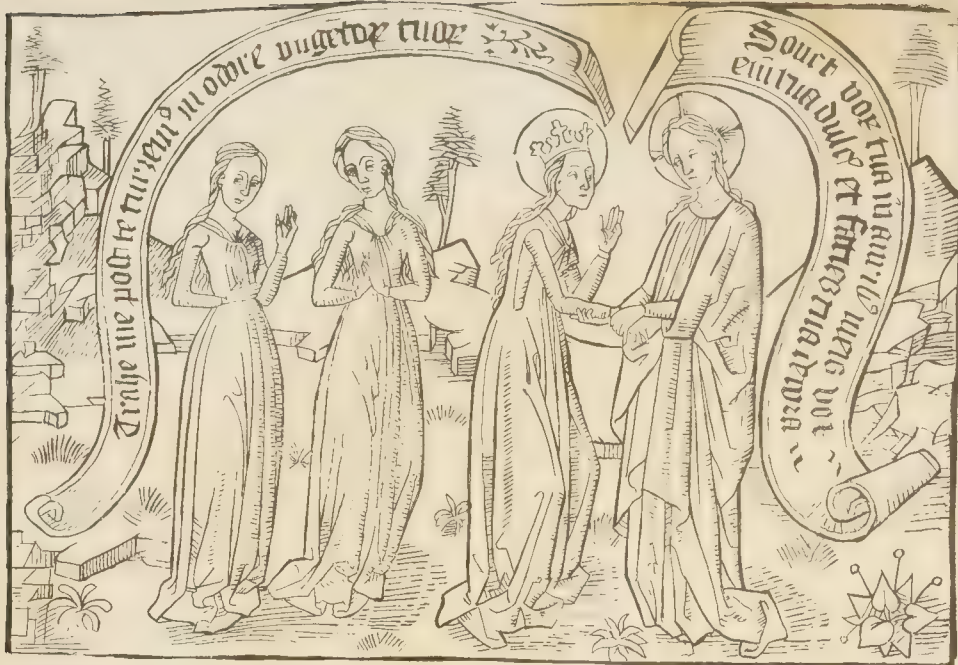 Trahe me post te curremꝰ in odore vngetoꝝ tuoꝝ
Sonet vox tua in auribꝰ meis vox
eni tua dulcꝭ et facies tua decora